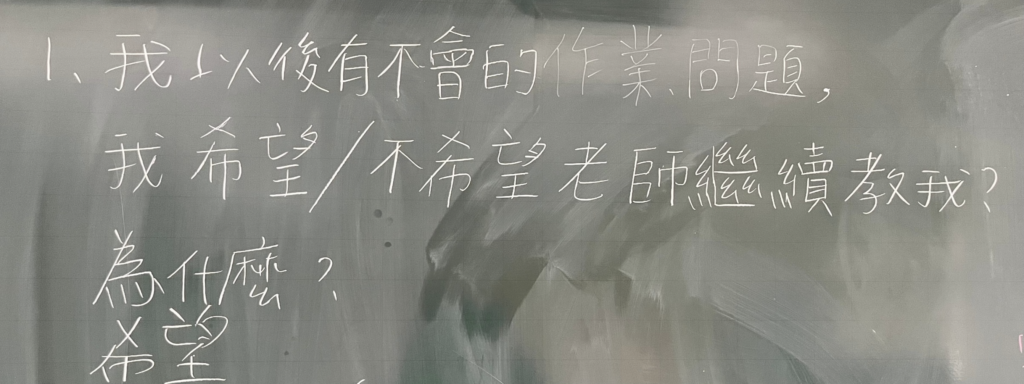 1、我以後有不會的作業問題,
我希望/不希望老師繼續教我?
為什麼?
希望